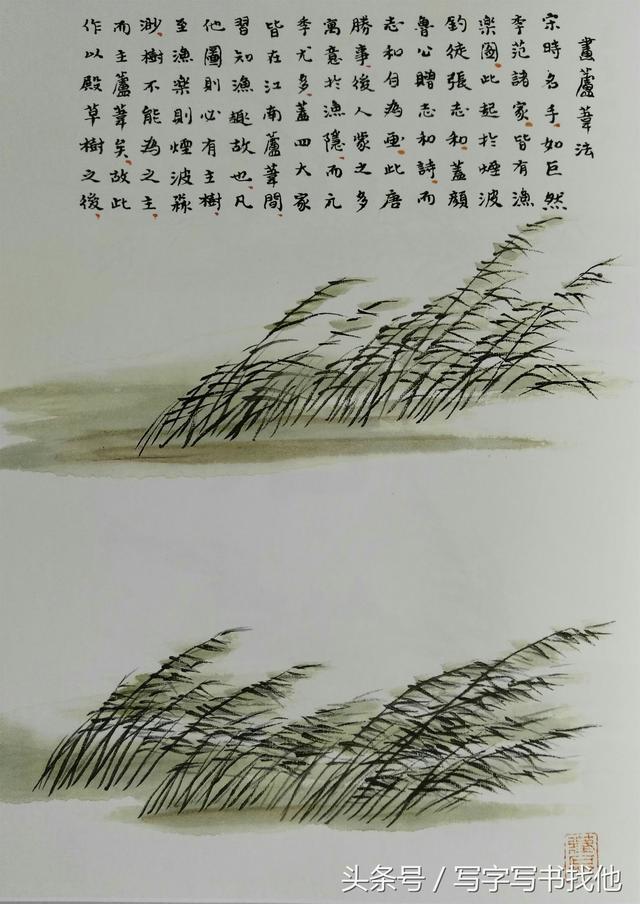 畫蘆葦法
宋時名手如巨然
李范諸家皆有漁
樂圖此起於煙波
釣徒張志和蓋顏
魯公贈志和詩而
志和自為画此唐
勝事後人蒙之多
寓意於漁隱而元
季尤多蓋四大家
皆在江南蘆葦間
習知漁趣故也凡
他圖則必有主樹
至漁樂則煙波淼
渺樹不能為之主
而主蘆葦矣故此
作以殿草樹之後
头条号 / 写字写书找他